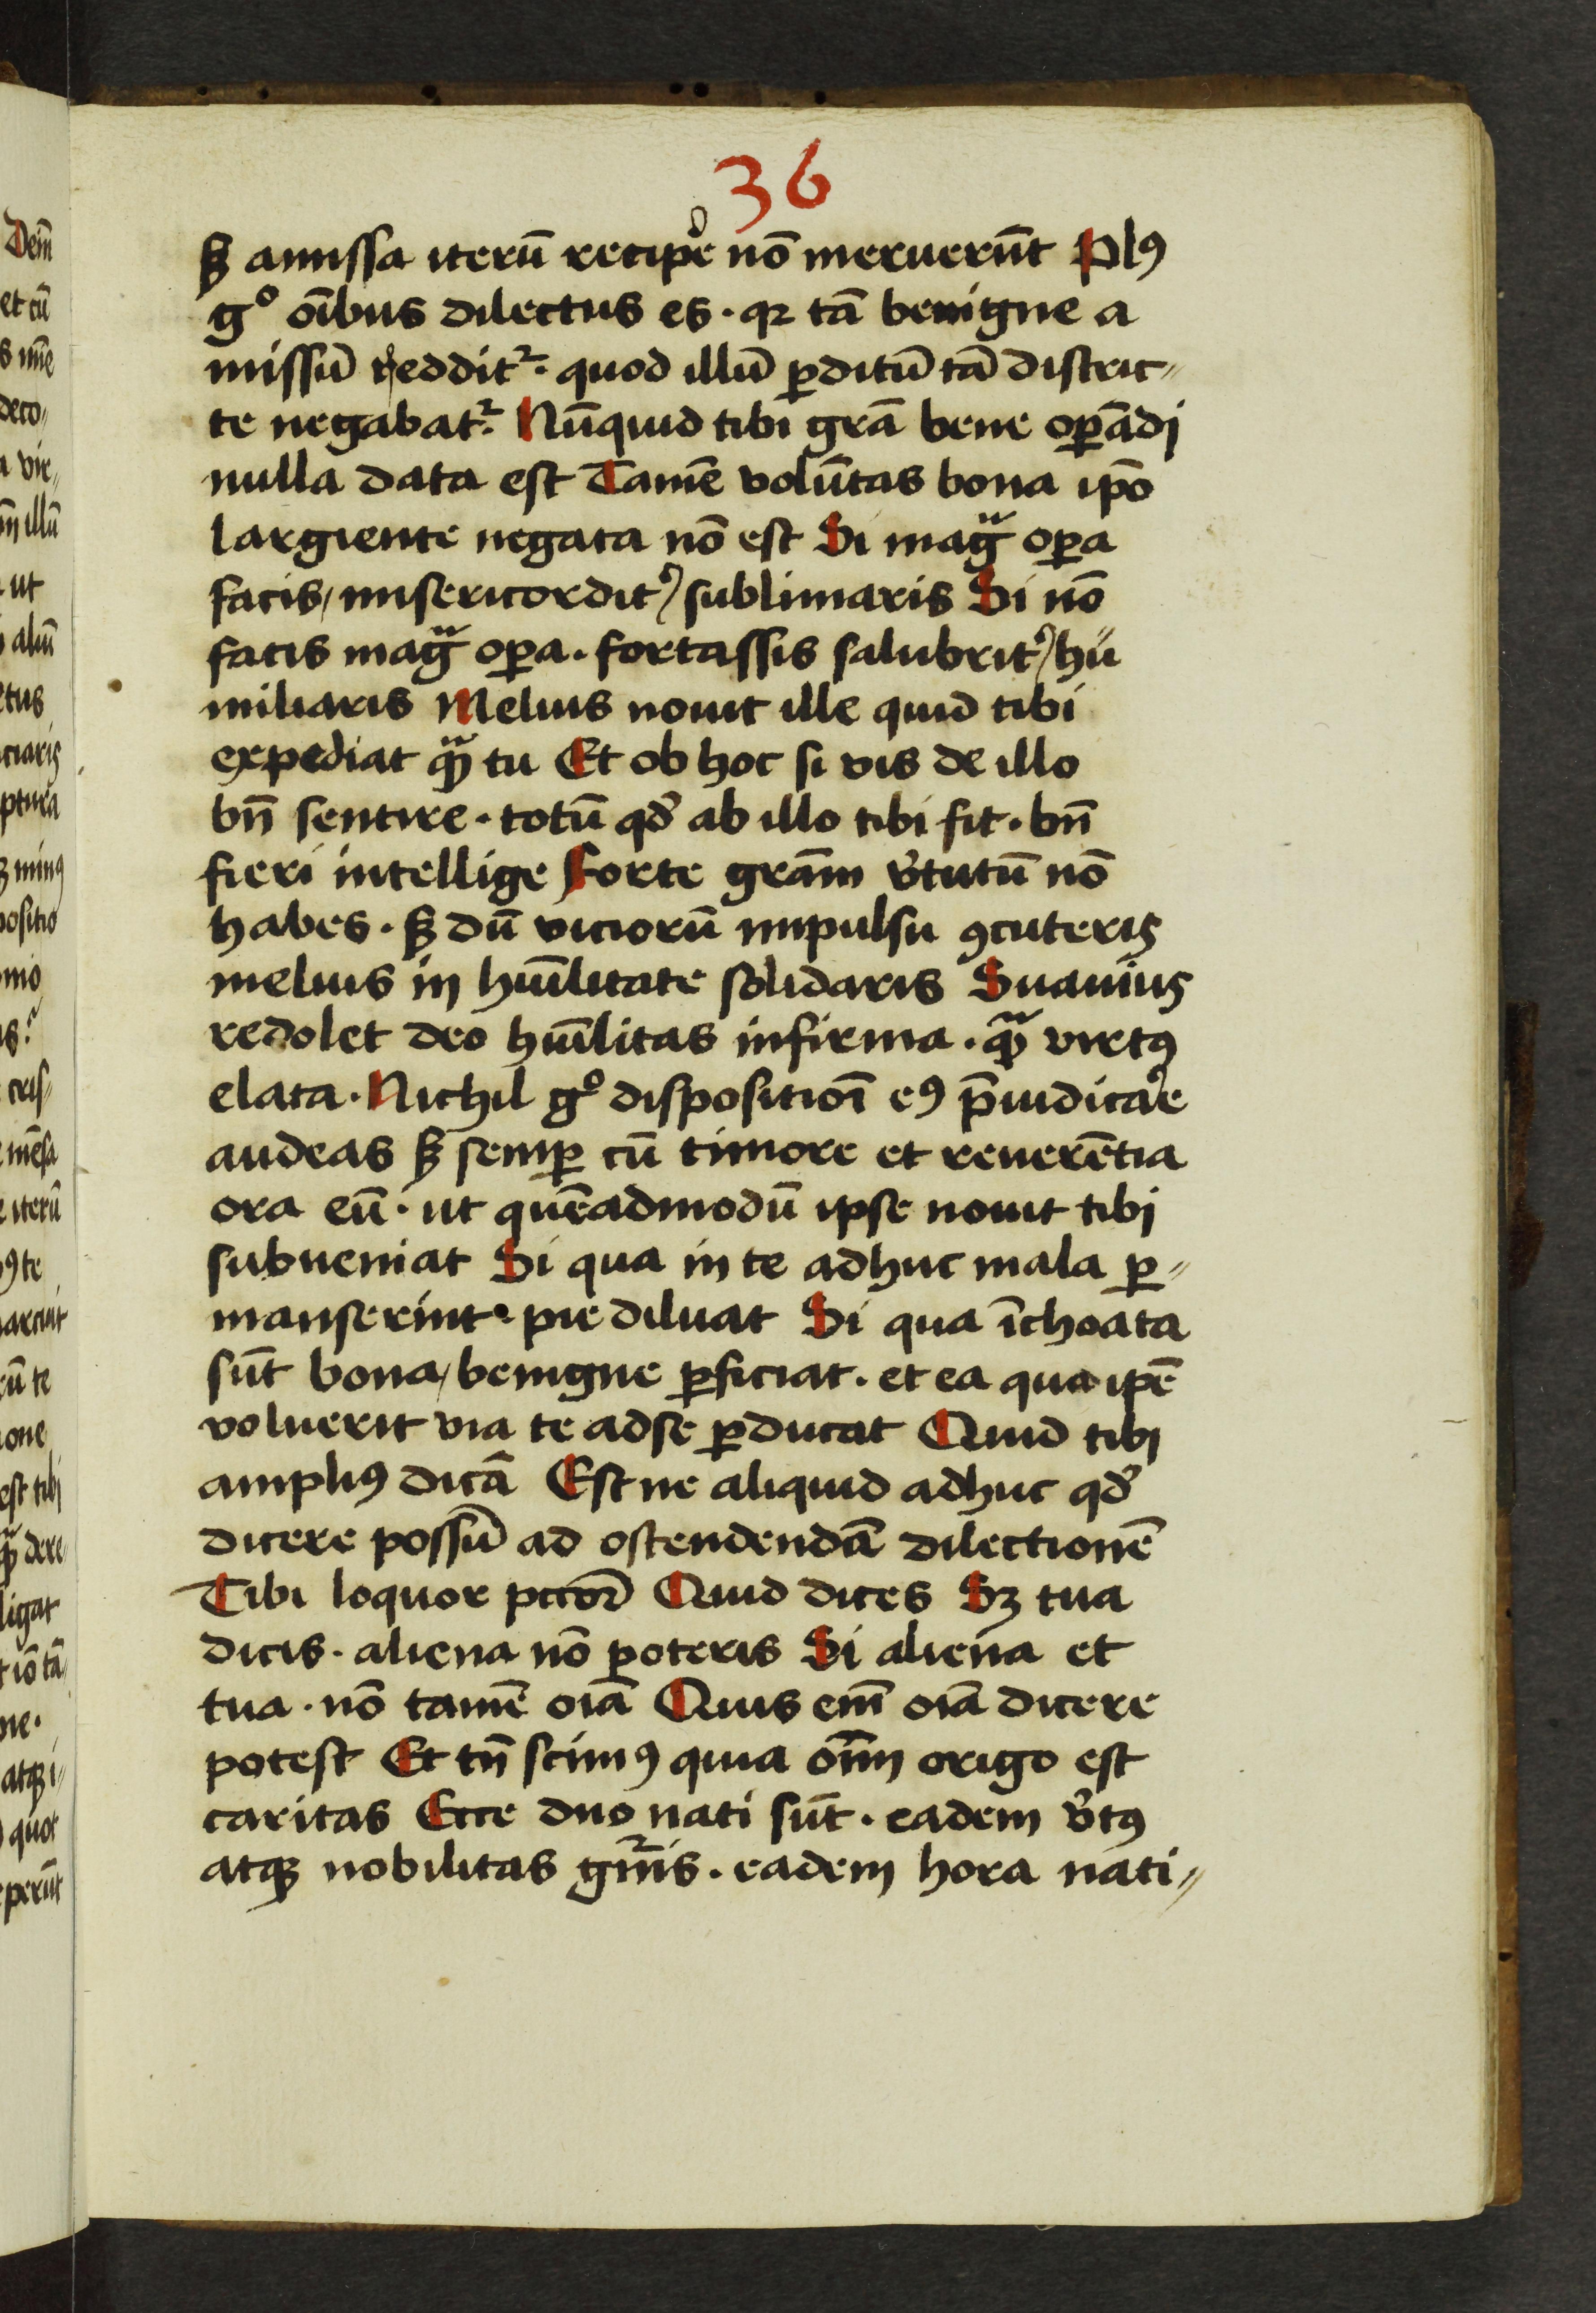 36
sꝫ amissa iterū recipe᷑ nō meruerūt Plꝰ
gͦ oībus dilectus es · qꝛ tā benigne a
missū reddit᷑ · quod illū ꝑditū tā distric〃
te negabat᷑ · Nūquid tibi grā bene oꝑādi
nulla data est Tamē volūtas bona ip̄o
largiente negata nō est Si magᷓ oꝑa
facis / misericordit᷑ / sublimaris Si nō
facis magᷓ oꝑa · fortassis salubrit᷑ / hu〃
miliaris Melius nouit ille quid tibi
expediat qᷓꝫ tu Et ob hoc si vis de illo
bn̄ sentire · totū qd᷑ ab illo tibi fit · bn̄
fieri intellige Forte grām v᷑tutū nō
habes · sꝫ dū viciorū impulsu ꝯcuteris
melius in hūilitate solidaris Suauius
redolet deo hūilitas infirma · qᷓꝫ virtꝰ
elata · Nichil gͦ dispositiōi eꝰ p̄iudica᷑e
audeas sꝫ semꝑ cū timore et reuerētia
ora eū · ut quēadmodū ipse nouit tibi
subueniat Si qua in te adhuc mala ꝑ〃
manserint · pie diluat Si qua īchoata
sūt bona / benigne ꝑficiat · et ea qua ip̄e
voluerit via te adse ꝑducat Quid tibi
ampliꝰ dicā Est ne aliquid adhuc qd᷑
dicere possū ad ostendendā dilectionē
Tibi loquor pccōꝛ Quid dices Sꝫ tua
dicis · aliena nō poteris Si aliena et
tua · nō tamē oīa Quis em̄ oīa dicere
potest Et tn̄ scimꝰ quia oīm origo est
caritas Ecce duo nati sūt · eadem v᷑tꝰ
atqꝫ nobilitas gn̄is · eadem hora nati〃